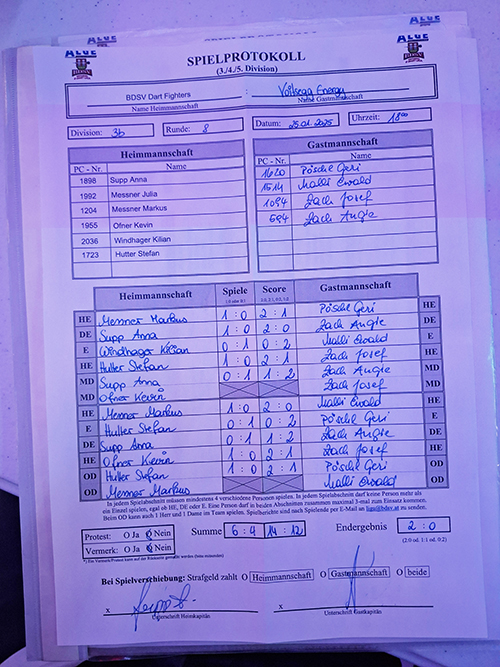 ALGE
ALGE
ALGE
SPIELPROTOKOLL
(3./4./5. Division)
BDSV Dart Fighters Voitsega Energy
Name Heimmannschaft Name Gastmannschaft
Division: 3b Runde: 8 Datum: 25.01.2025 Uhrzeit: 1800
Heimmannschaft Gastmannschaft
PC - Nr. Name PC - Nr. Name
1898 Supp Anna 1620 Pösche Geri
1992 Messner Julia 1514 Malli Ewald
1204 Messner Markus 1094 Zach Josef
1955 Ofner Kevin 594 Zach Angie
2036 Windhager Kilian
1723 Hutter Stefan
Heimmannschaft Spiele Score Gastmannschaft
HE Messner Markus 1 : 0 2 : 1 Pösche Geri HE
DE Supp Anna 1 : 0 2 : 0 Zach Angie DE
E Windhager Kilian 0 : 1 0 : 2 Malli Ewald E
HE Hutter Stefan 1 : 0 2 : 1 Zach Josef HE
MD Supp Anna 0 : 1 1 : 2 Zach Angie MD
MD Ofner Kevin Zach Josef MD
HE Messner Markus 1 : 0 2 : 0 Malli Ewald HE
E Hutter Stefan 0 : 1 0 : 2 Pösche Geri E
DE Supp Anna 0 : 1 1 : 2 Zach Angie DE
HE Ofner Kevin 1 : 0 2 : 1 Zach Josef HE
OD Hutter Stefan 1 : 0 2 : 1 Pösche Geri OD
OD Messner Markus Malli Ewald OD
In jedem Spielabschnitt müssen mindestens 4 verschiedene Personen spielen. In jedem Spielabschnitt darf keine Person mehr als
ein Einzel spielen, egal ob HE, DE oder E. Eine Person darf in beiden Abschnitten zusammen maximal 3-mal zum Einsatz kommen.
Beim OD kann auch 1 Herr und 1 Dame im Team spielen. Spielberichte sind nach Spielende per E-Mail an liga@bdsv.at zu senden.
Protest: O Ja O Nein Summe 6 : 4 14 : 12 Endergebnis 2 : 0
Vermerk: O Ja O Nein (2:0 od. 1:1 od. 0:2)
Bei Spielverschiebung: Strafgeld zahlt O Heimmannschaft O Gastmannschaft O beide
x x
Unterschrift Heimkapitän Unterschrift Gastkapitän